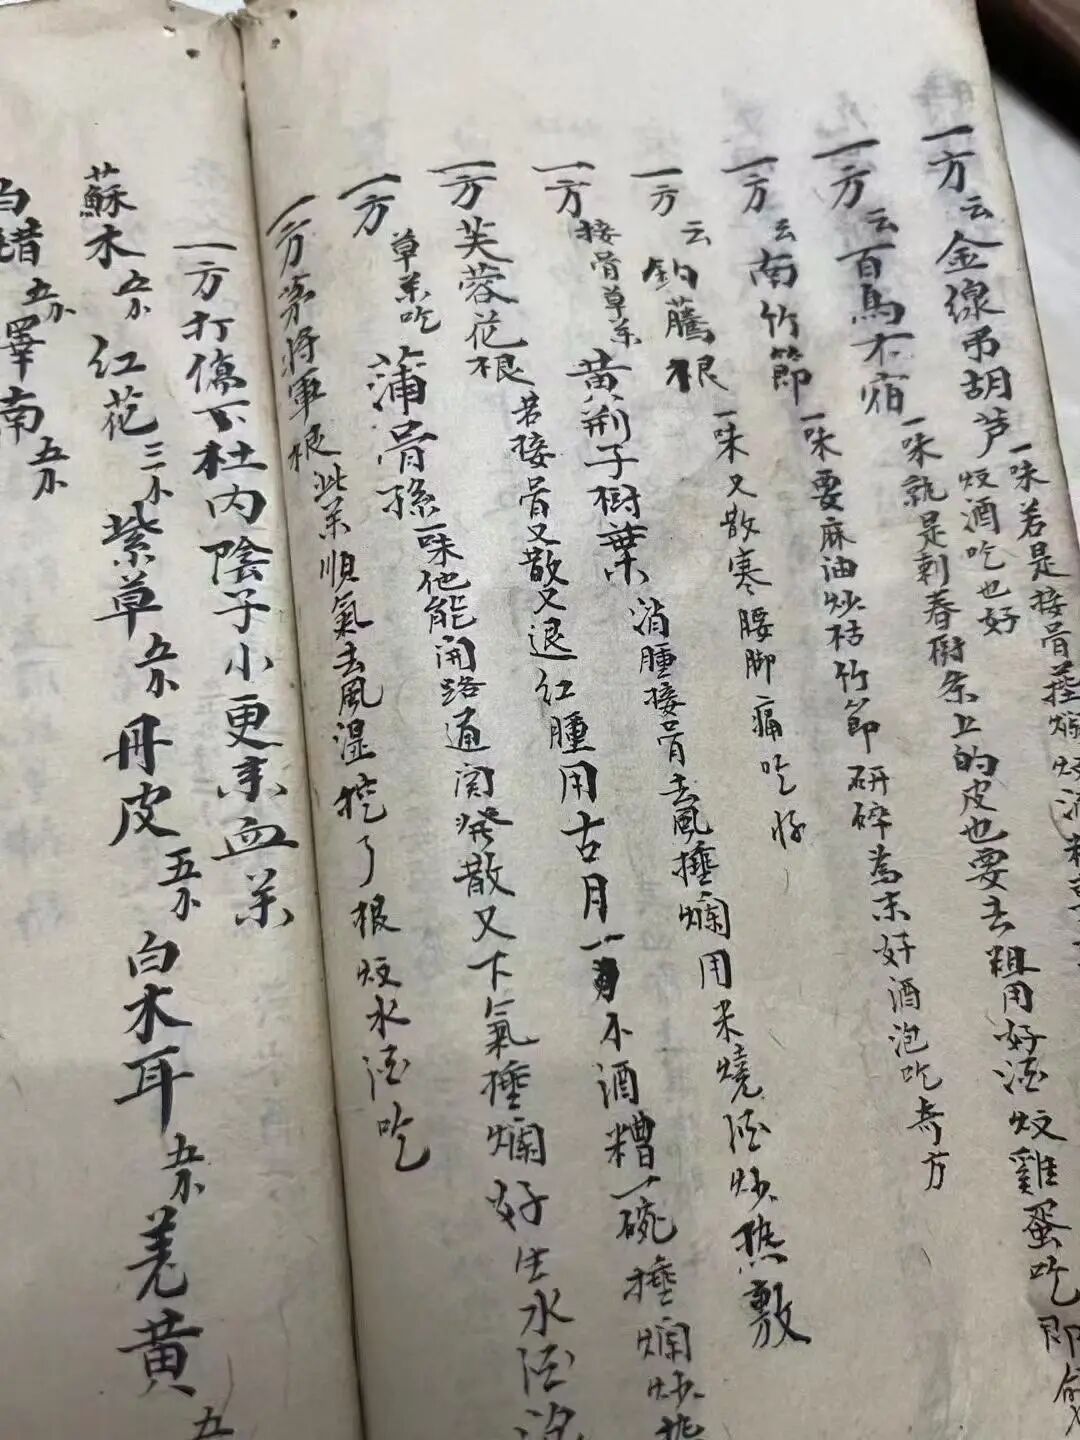 一方云金線吊胡芦一味若是接骨捶爛炆酒
炆酒吃也好
一方云百鳥不宿一味就是刺春樹条上的皮也要去粗用好酒炆雞蛋吃即
一方云南竹節一味要麻油炒枯竹節研碎為末好酒泡吃奇方
一方云釣騰根一味又散寒腰脚痛吃好
一方接骨草药黄荆子樹葉消腫接骨去風捶爛用米燒酒炒热敷
一方芙蓉花根若接骨又散又退红腫用古月一小酒糟一碗捶爛炒
一方草药吃蒲骨孫一味他能開路通関発散又下氣捶爛好生水酒泡
一方茅将軍根此药順氣去風湿挖了根炆水酒吃
一方打傷下杜内陰子小更末血药
蘇木五小红花三小紫草五小丹皮五小白木耳五小羌黄五
白蜡五小畢南五小